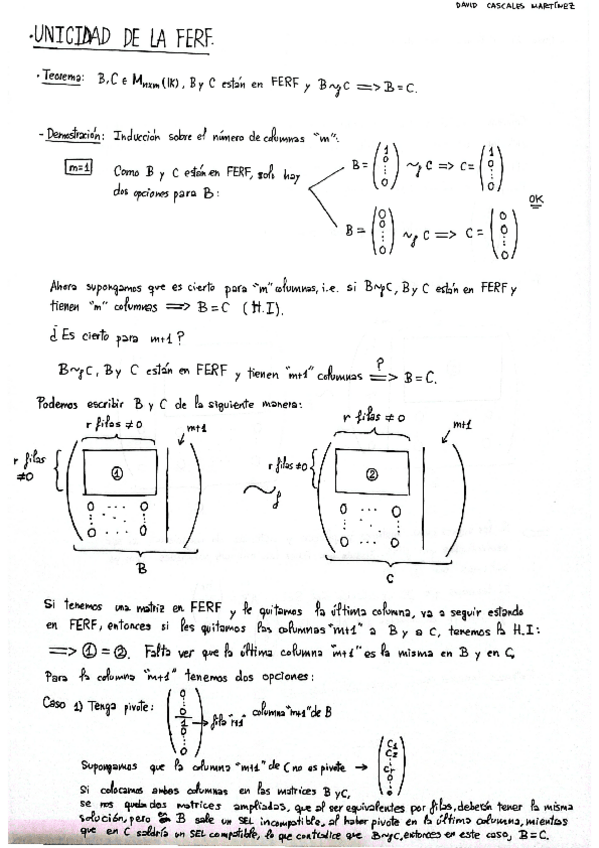 DAVID CASCALES MARTÍNEZ
·UNICIDAD DE LA FERF.
· Teorema: B,C ∈ Mnxm (IK), B y C están en FERF y B~fC => B=C.
- Demostración: Inducción sobre el número de columnas "m":
m=1 Como B y C están en FERF, solo hay
dos opciones para B:
B = (1 0 ⋮ 0) ~f C => C = (1 0 ⋮ 0)
OK
B = (0 0 ⋮ 0) ~f C => C = (0 0 ⋮ 0)
Ahora supongamos que es cierto para "m" columnas, i.e. si B~fC, B y C están en FERF y
tienen "m" columnas => B=C (H.I).
¿Es cierto para m+1?
B~fC, B y C están en FERF y tienen "m+1" columnas =>? B=C.
Podemos escribir B y C de la siguiente manera:
r filas ≠0 m+1 r filas ≠0 m+1
r filas ≠0 ① ~f r filas ≠0 ②
0 ... 0 0 ... 0
⋮ ⋱ ⋮ ⋮ ⋱ ⋮
0 ... 0 0 ... 0
B C
Si tenemos una matriz en FERF y le quitamos la última columna, va a seguir estando
en FERF, entonces si les quitamos las columnas "m+1" a B y a C, tenemos la H.I:
=> ① = ②. Falta ver que la última columna "m+1" es la misma en B y en C.
Para la columna "m+1" tenemos dos opciones:
Caso 1) Tenga pivote: (0 ⋮ 0 1 0 ⋮ 0) → fila "r+1" columna "m+1" de B
Supongamos que la columna "m+1" de C no es pivote → (C1 C2 ⋮ Cr 0 ⋮ 0)
Si colocamos ambas columnas en las matrices B y C,
se nos quedan dos matrices ampliadas, que al ser equivalentes por filas, deberán tener la misma
solución, pero en B sale un SEL incompatible, al haber pivote en la última columna, mientas
que en C saldría un SEL compatible, lo que contradice que B~fC, entonces en este caso, B=C.